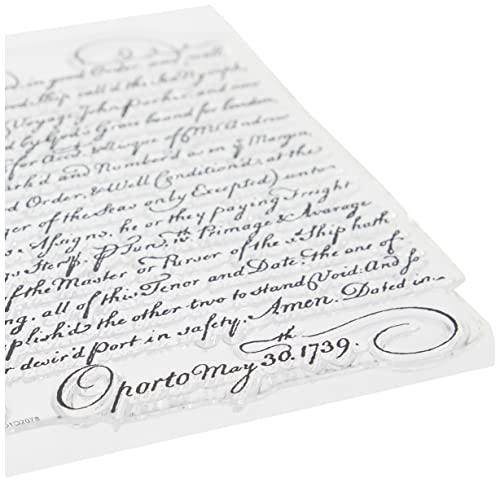 in good Order and well
Ship call'd the Sea Nymph
Voyage John Parker, and now
by God's Grace bound for London
for Acc.t & Risque of Mr. Andrew
mark'd and Number'd as in ye Margen,
Order, & Well Condition'd, at the
ger of the Seas only Excepted) unto
Assigns, he or they paying Freight
Sterg. ℔ Tun, wth Primage & Avarage
f the Master or Purser of the sd Ship hath
ng, all of this Tenor and Date, the one of
plish'd the other two to stand Void. And so
r desir'd Port in safety. Amen. Dated in
Oporto May 30.th 1739.
D1C2078